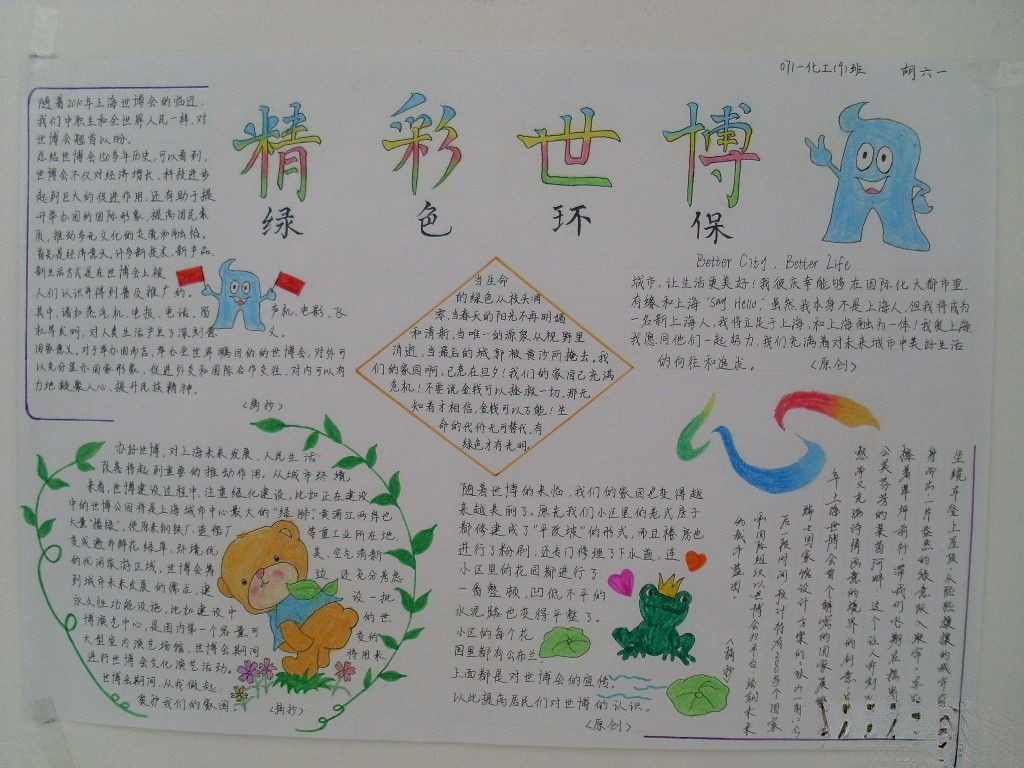 071-化工(9)班 胡六一
精彩世博
绿色环保
随着2010年上海世博会的临近,
我们中职生和全世界人民一样,对
世博会翘首以盼。
总结世博会150多年历史,可以看到,
世博会不仅对经济增长,科技进步
起到巨大的促进作用,还有助于提
升举办国的国际形象,提高国民素
质,推动多元文化的交流和融恰。
首先是经济意义,许多新技术,新产品,
新生活方式是在世博会上被
人们认识并得到普及推广的。
其中,诸如蒸汽机、电报、电话、留声机、电影、飞
机等发明,对人类生活产生了深刻意义。
国家意义,对于举办国而言,举办全世界瞩目的的世博会,对外可
以充分显示国家形象,促进外交和国际合作交往,对内可以有
力地凝聚人心,提升民族精神。
<摘抄>
当生命
的绿色从枝头凋
零,当春天的阳光不再明媚
和清新,当唯一的源泉从视野里
消逝,当最后的城郭被黄沙所掩去,我
们的家园啊,已危在旦夕!我们的家园已充满
危机!不要说金钱可以拯救一切,那无
知者才相信,金钱可以万能!生
命的代价无可替代,有
绿色才有光明。
Better City, Better Life
城市,让生活更美好!我很庆幸能够在国际化大都市里,
有缘和上海"Say Hello,"虽然我本身不是上海人,但我将成为
一名新上海人,我将立足于上海,和上海融为一体!我爱上海
我愿同他们一起努力,我们充满着对未来城市中美好生活
的向往和追求。
<原创>
办好世博,对上海未来发展,人民生活
改善将起到重要的推动作用。从城市环境
来看,世博建设过程中,注重绿化建设,比如正在建设
中的世博公园将是上海城市中心最大的"绿肺",黄浦江两岸也
大量"播绿",使原来钢铁厂、造船厂等重工业所在地,
变成遍布鲜花绿草,环境优美、空气清新
的休闲旅游区域,世博会筹划,还充分考虑
到城市未来发展的需求,建设一批
永久性功能设施,比如建设中的世
博演艺中心,是国内第一个容量可变的
大型室内演艺场馆,世博会期间将用来
进行世博会文化演艺活动。
世博会期间,从我做起,
爱护我们的家园。
<摘抄>
随着世博的来临,我们的家园也变得越
来越美丽了。原先我们小区里的老式房子
都修建成了"平改坡"的形式,而且楼房也
进行了粉刷,还专门修理了下水道,连
小区里的花园都进行了
一番整顿,凹低不平的
水泥路也变得平整了。
小区的每个花
园里都有公布兰,
上面都是对世博会的宣传,
以此提高居民们对世博的认识。
<原创>
和国际组织以世博会为平台,绘制未来
的城市蓝图。
<摘抄>